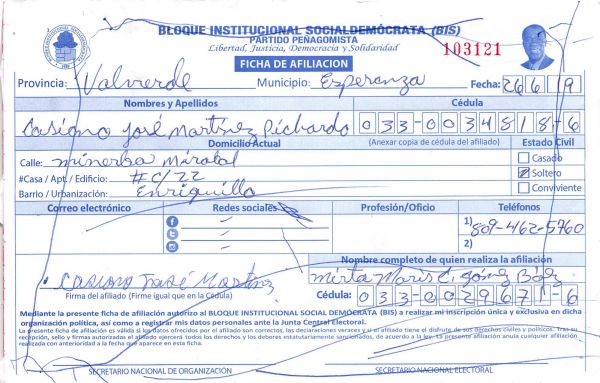 BLOQUE INSTITUCIONAL SOCIALDEMÓCRATA (BIS)
PARTIDO PEÑAGOMISTA
Libertad, Justicia, Democracia y Solidaridad
103121
FICHA DE AFILIACION
Provincia: Valverde Municipio: Esperanza Fecha: 26 6 19
Nombres y Apellidos Cédula
Casiano José Martínez Pichardo 033-0034818-6
Domicilio Actual (Anexar copia de cédula del afiliado) Estado Civil
Calle: Minerba Mirabal Casado
#Casa / Apt. / Edificio: # C/22 Soltero
Barrio / Urbanización: Enriquillo Conviviente
Correo electrónico Redes sociales Profesión/Oficio Teléfonos
1) 809-462-5760
2)
Nombre completo de quien realiza la afiliación
Casiano José Martínez Mirta Maris
Firma del afiliado (Firme igual que en la Cédula) Cédula: 033-0029671-6
Mediante la presente ficha de afiliación autorizo al BLOQUE INSTITUCIONAL SOCIAL DEMÓCRATA (BIS) a realizar mi inscripción única y exclusiva en dicha
organización política, así como a registrar mis datos personales ante la Junta Central Electoral.
La presente ficha de afiliación es válida si los datos ofrecidos por el afiliado son correctos, las declaraciones veraces y si el afiliado tiene el disfrute de sus derechos civiles y políticos. Tras su
recepción, sello y firmas autorizadas el afiliado ejercerá todos los derechos y los deberes estatutariamente sancionados, de acuerdo a la ley. La presente afiliación anula cualquier afiliación
realizada con anterioridad a la fecha que aparece en esta ficha.
SECRETARIO NACIONAL DE ORGANIZACIÓN SECRETARIO NACIONAL ELECTORAL